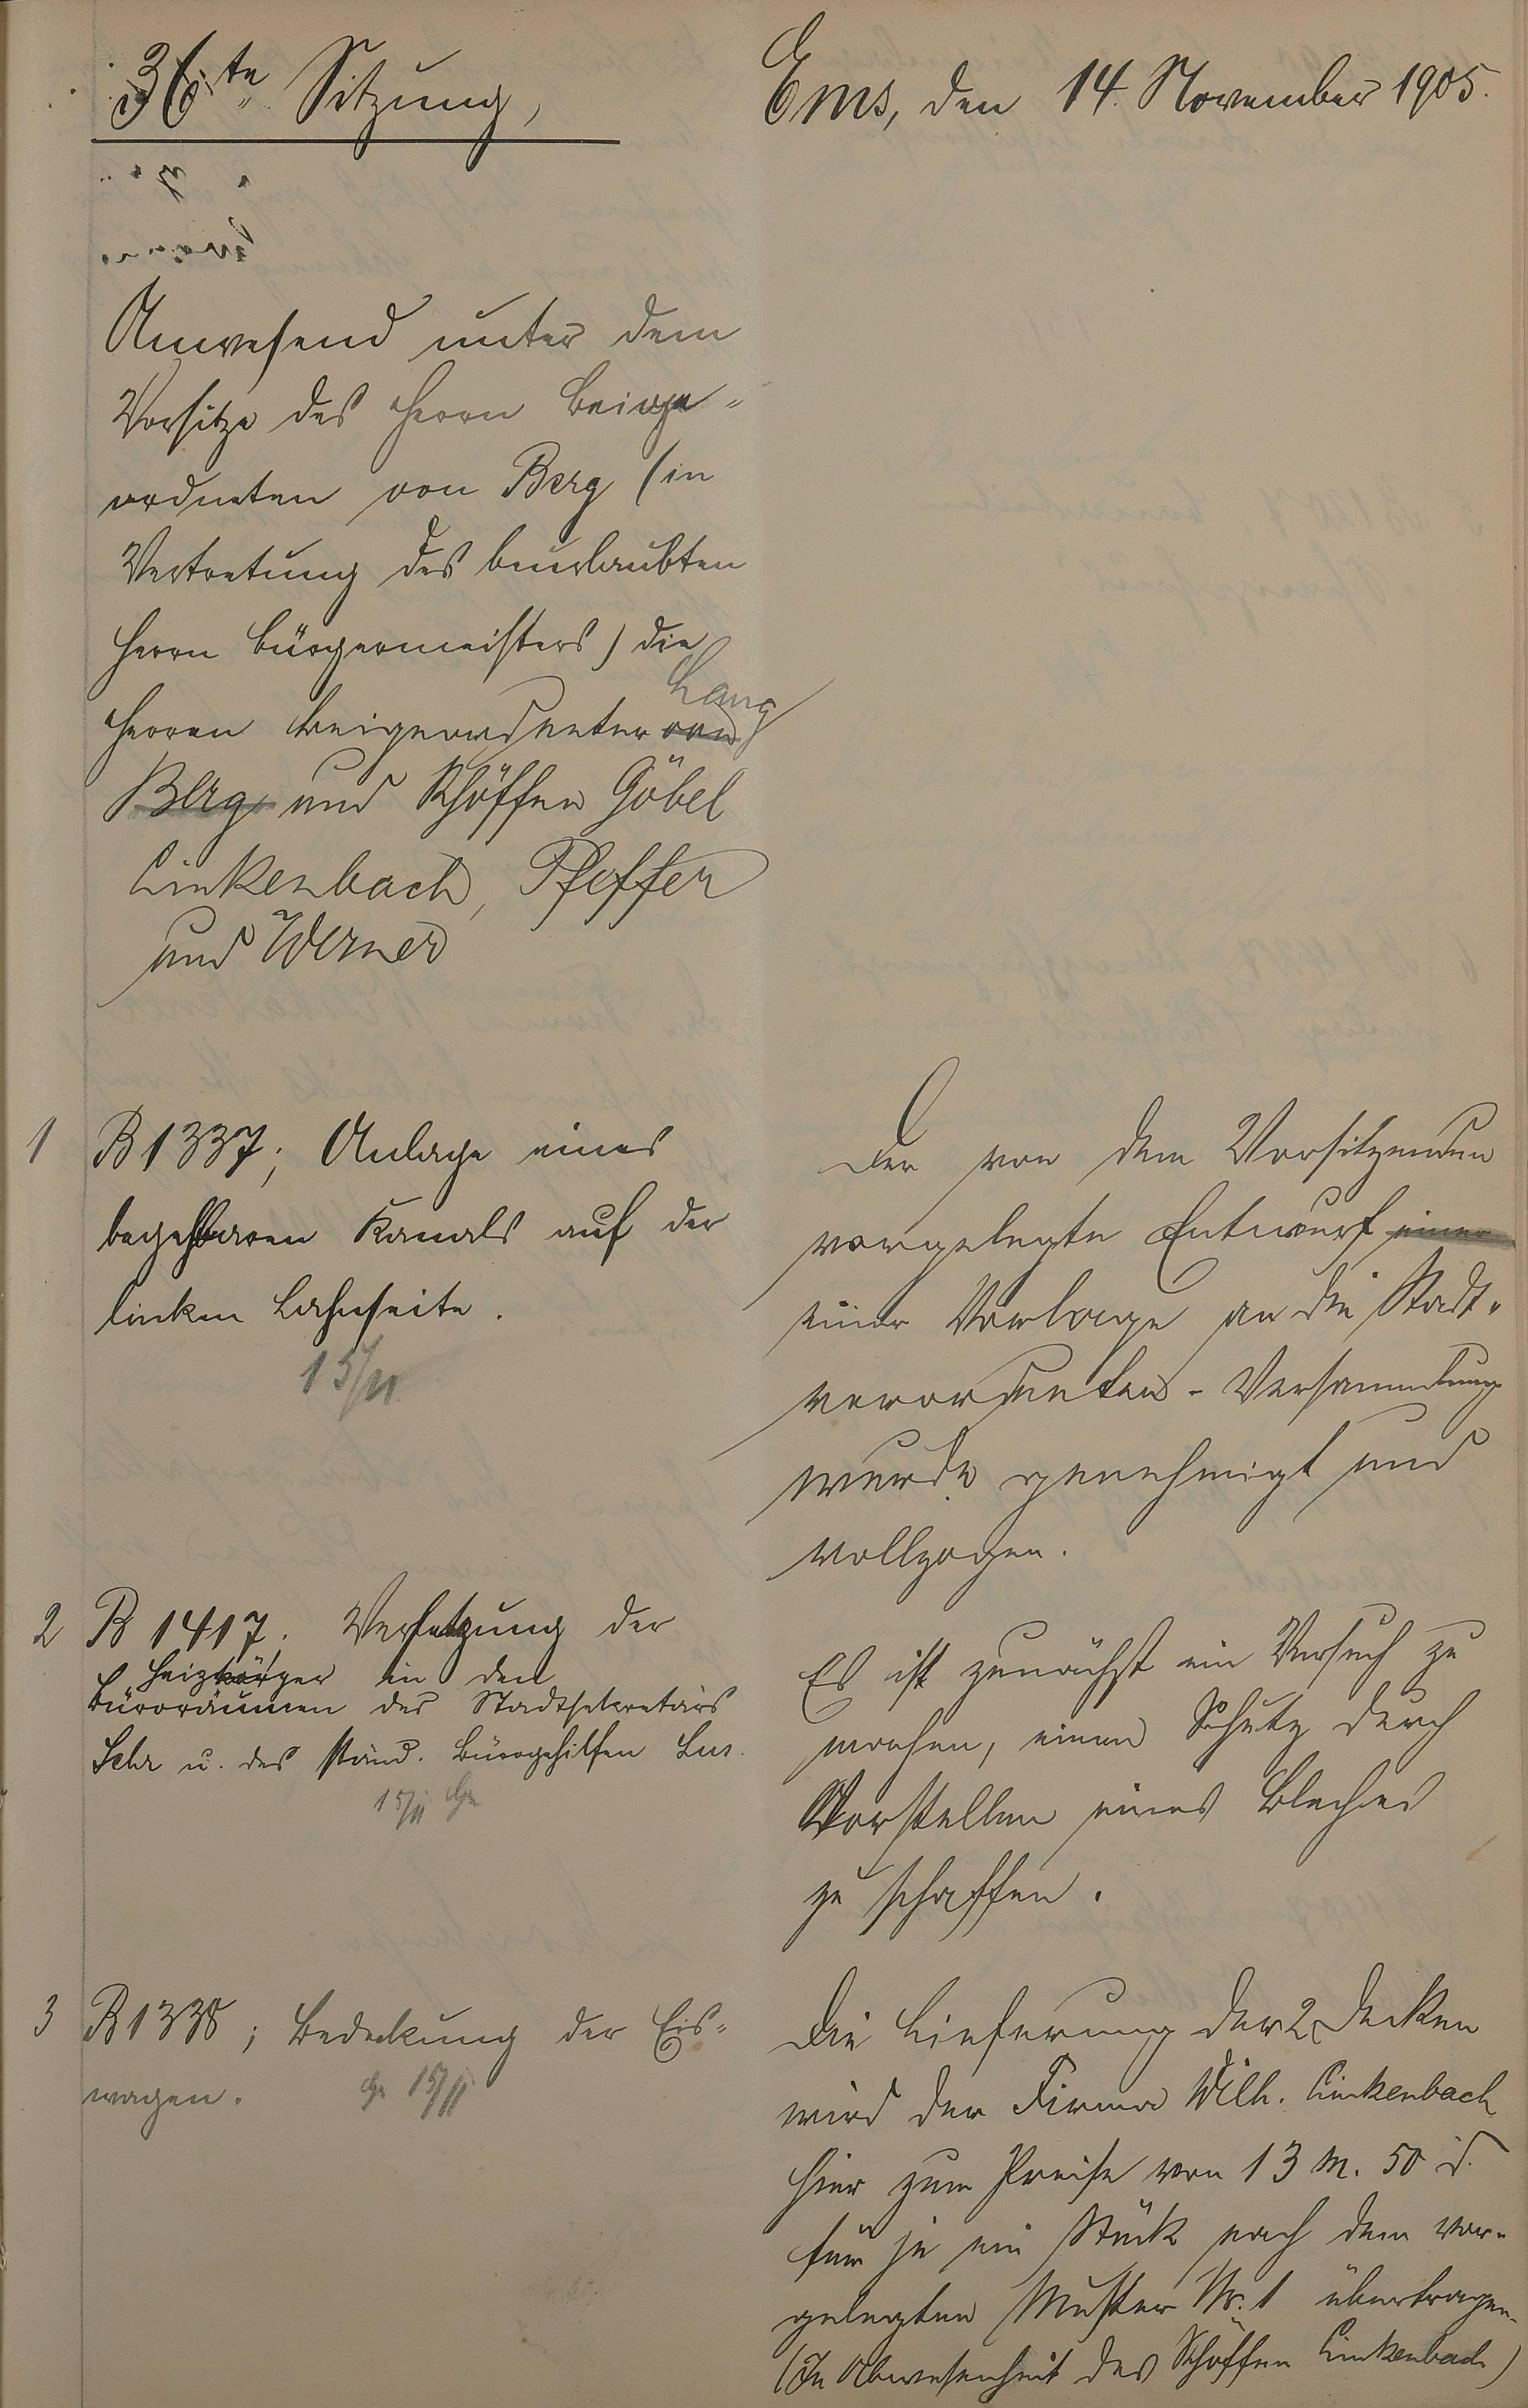 36te Sitzung,
Ems, den 14. November 1905.
Anwesend unter dem
Vorsitze des Herrn Beige=
ordneten von Berg (in
Vertretung des beurlaubten
Herrn Bürgermeisters) die
Lang
Herren Beigeordneter von
Berg und Schöffen Göbel
Linkenbach, Pfeffer
und Werner
1 B 1337; Anlage eines
begehbaren Kanals auf der
linken Lahnseite.
15/11
Der von dem Vorsitzenden
vorgelegte Entwurf einer
einer Vorlage an die Stadt-
verordneten-Versammlung
wurde genehmigt und
vollzogen.
2 B 1417. Versetzung der
Heizkörper in den
Büroräumen des Stadtsekretärs
u. des ständ. Bürogehilfen
15/11
Es ist zunächst ein Versuch zu
machen, einen Schutz durch
Vorstellen eines Bleches
zu schaffen.
3 B 1338; Bedeckung der Eis=
wagen.
15/11
Die Lieferung der 2 Decken
wird der Firma Wilh. Linkenbach
hier zum Preise von 13 M. 50
für je ein Stück nach dem vor-
gelegten Muster Nr. 1 übertragen.
(In Abwesenheit des Schöffen Linkenbach)